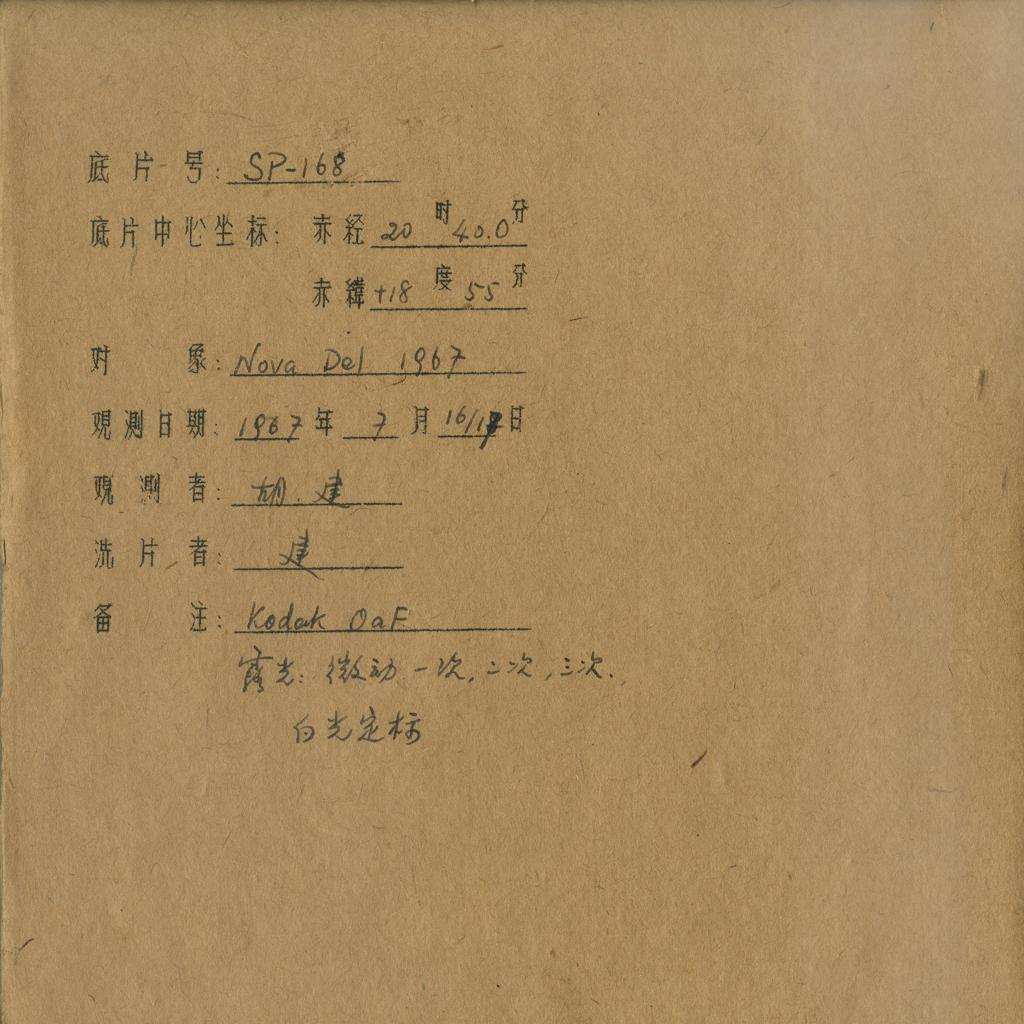 底片号: SP-168
底片中心坐标: 赤经 20时40.0分
赤緯 +18度55分
对象: Nova Del 1967
观测日期: 1967年7月16/17日
观测者: 胡.建
洗片者: 建
备注: Kodak OaF
露光: 微动一次,二次,三次.
白光定标